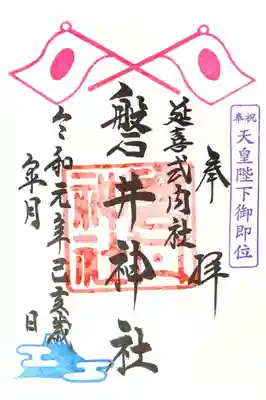 奉祝
天皇陛下御即位
奉拝
延喜式内社
磐井神社
令和元年己亥歳
皐月 日